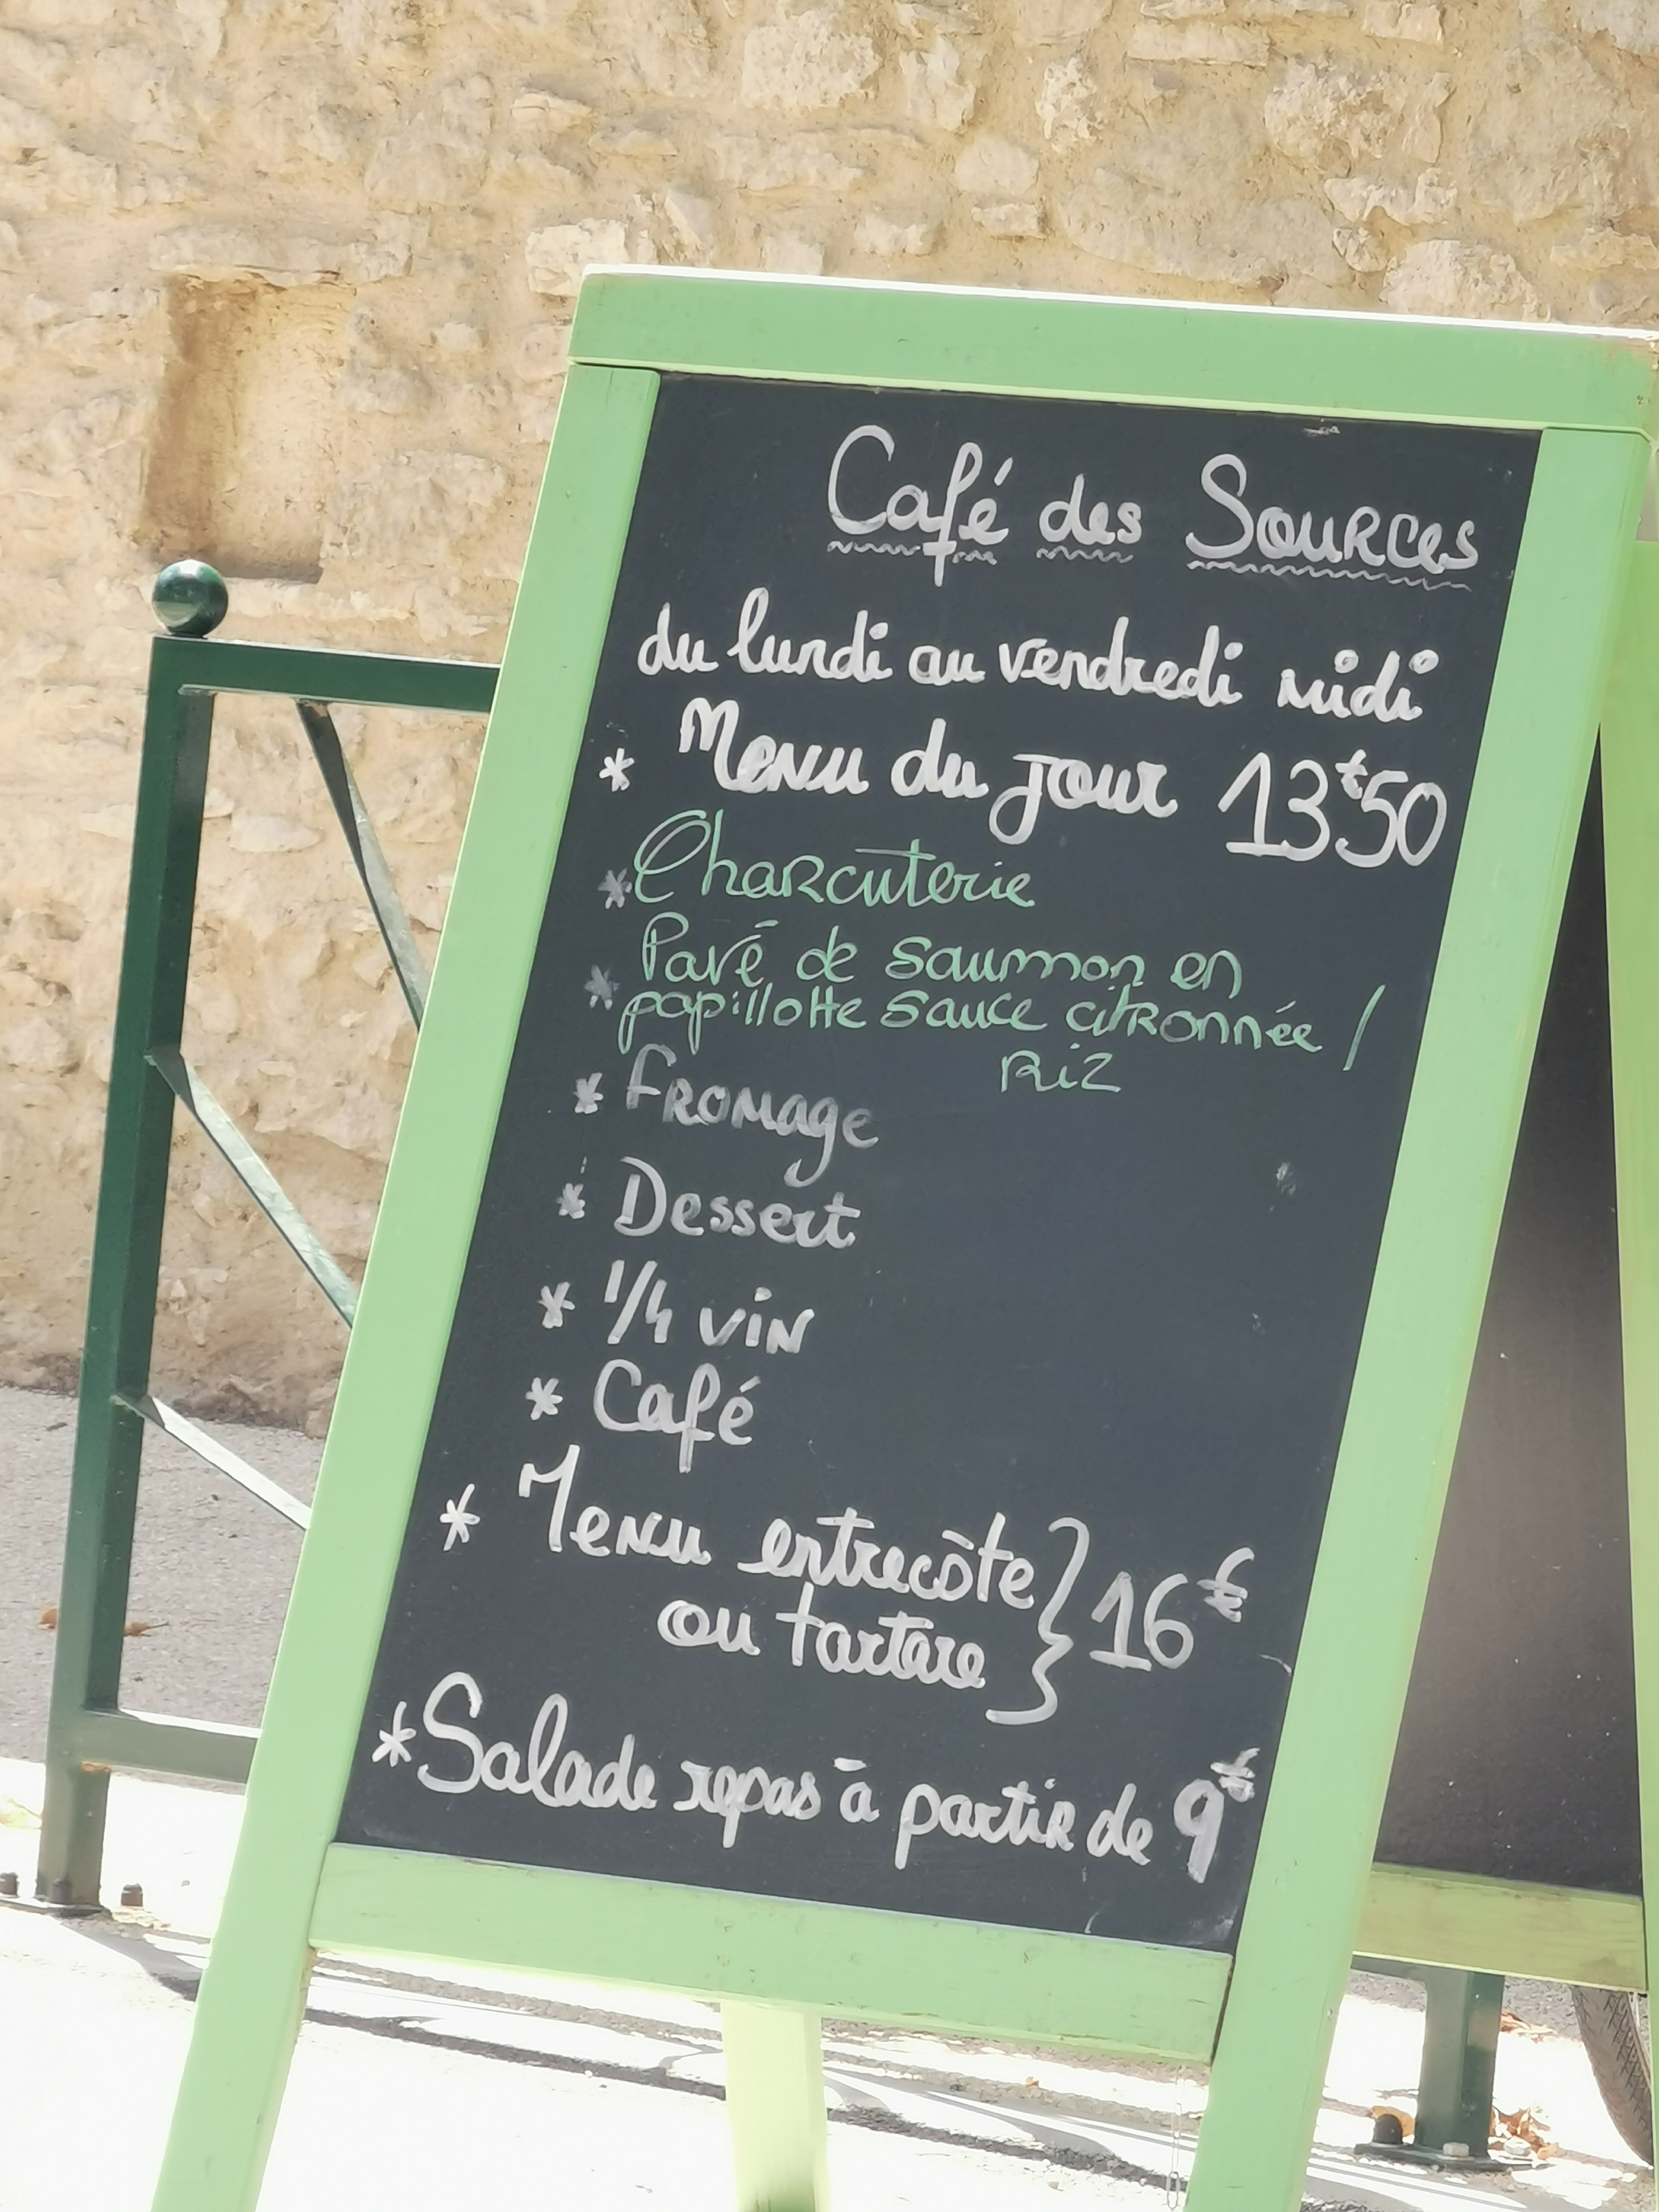 Café des Sources
du lundi au vendredi midi
* Menu du jour 13€50
* Charcuterie
* Pavé de saumon en
papillotte sauce citronnée /
Riz
* Fromage
* Dessert
* 1/4 vin
* Café
* Menu entrecôte } 16€
ou tartare
* Salade repas à partir de 9€